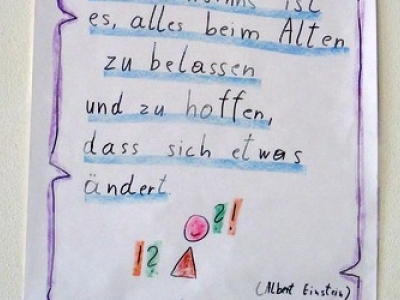 ist
es, alles beim Alten
zu belassen
und zu hoffen,
dass sich etwas
ändert
?!
!?
(Albert Einstein)